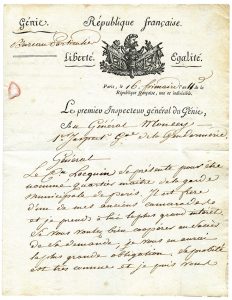 Génie.
République française.
Bureau
Liberté. Égalité.
Paris, le 16 frimaire
République française, une et indivisible.
Le premier Inspecteur général du Génie,
Au Général Moncey
1er Inspect. Gal de la Gendarmerie
Général
Le Cen se présente pour être
nommé quartier maître de la garde
municipale de Paris. Il est frère
d'un de mes anciens camarades
et je prends à lui le plus grand intérêt.
Si vous voulez bien coopérer au succès
de sa demande, je vous en aurai
la plus grande obligation. Sa probité
est très connue et je puis vous